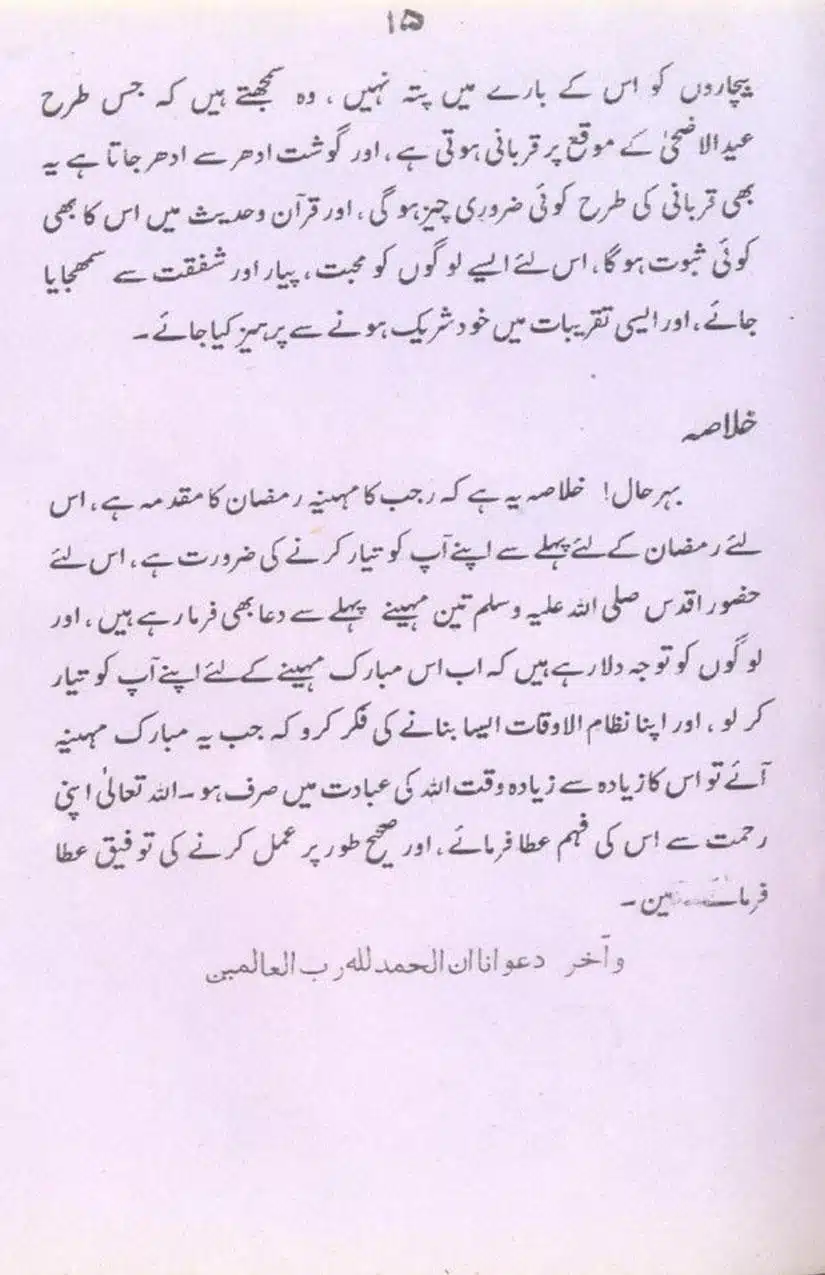 ۱۵
بیچاروں کو اس کے بارے میں پتہ نہیں ، وہ سمجھتے ہیں کہ جس طرح
عید الاضحیٰ کے موقع پر قربانی ہوتی ہے ، اور گوشت ادھر سے ادھر جاتا ہے یہ
بھی قربانی کی طرح کوئی ضروری چیز ہو گی ، اور قرآن و حدیث میں اس کا بھی
کوئی ثبوت ہو گا ، اس لئے ایسے لوگوں کو محبت ، پیار اور شفقت سے سمجھایا
جائے ، اور ایسی تقریبات میں خود شریک ہونے سے پرہیز کیا جائے ۔
خلاصہ
بہرحال! خلاصہ یہ ہے کہ رجب کا مہینہ رمضان کا مقدمہ ہے ، اس
لئے رمضان کے لئے پہلے سے اپنے آپ کو تیار کرنے کی ضرورت ہے ، اس لئے
حضور اقدس صلی اللہ علیہ وسلم تین مہینے پہلے سے دعا بھی فرما رہے ہیں ، اور
لوگوں کو توجہ دلا رہے ہیں کہ اب اس مبارک مہینے کے لئے اپنے آپ کو تیار
کر لو ، اور اپنا نظام الاوقات ایسا بنانے کی فکر کرو کہ جب یہ مبارک مہینہ
آئے تو اس کا زیادہ سے زیادہ وقت اللہ کی عبادت میں صرف ہو ۔ اللہ تعالیٰ اپنی
رحمت سے اس کی فہم عطا فرمائے ، اور صحیح طور پر عمل کرنے کی توفیق عطا
فرمائے ۔
وآخر دعوانا ان الحمد للہ رب العالمین